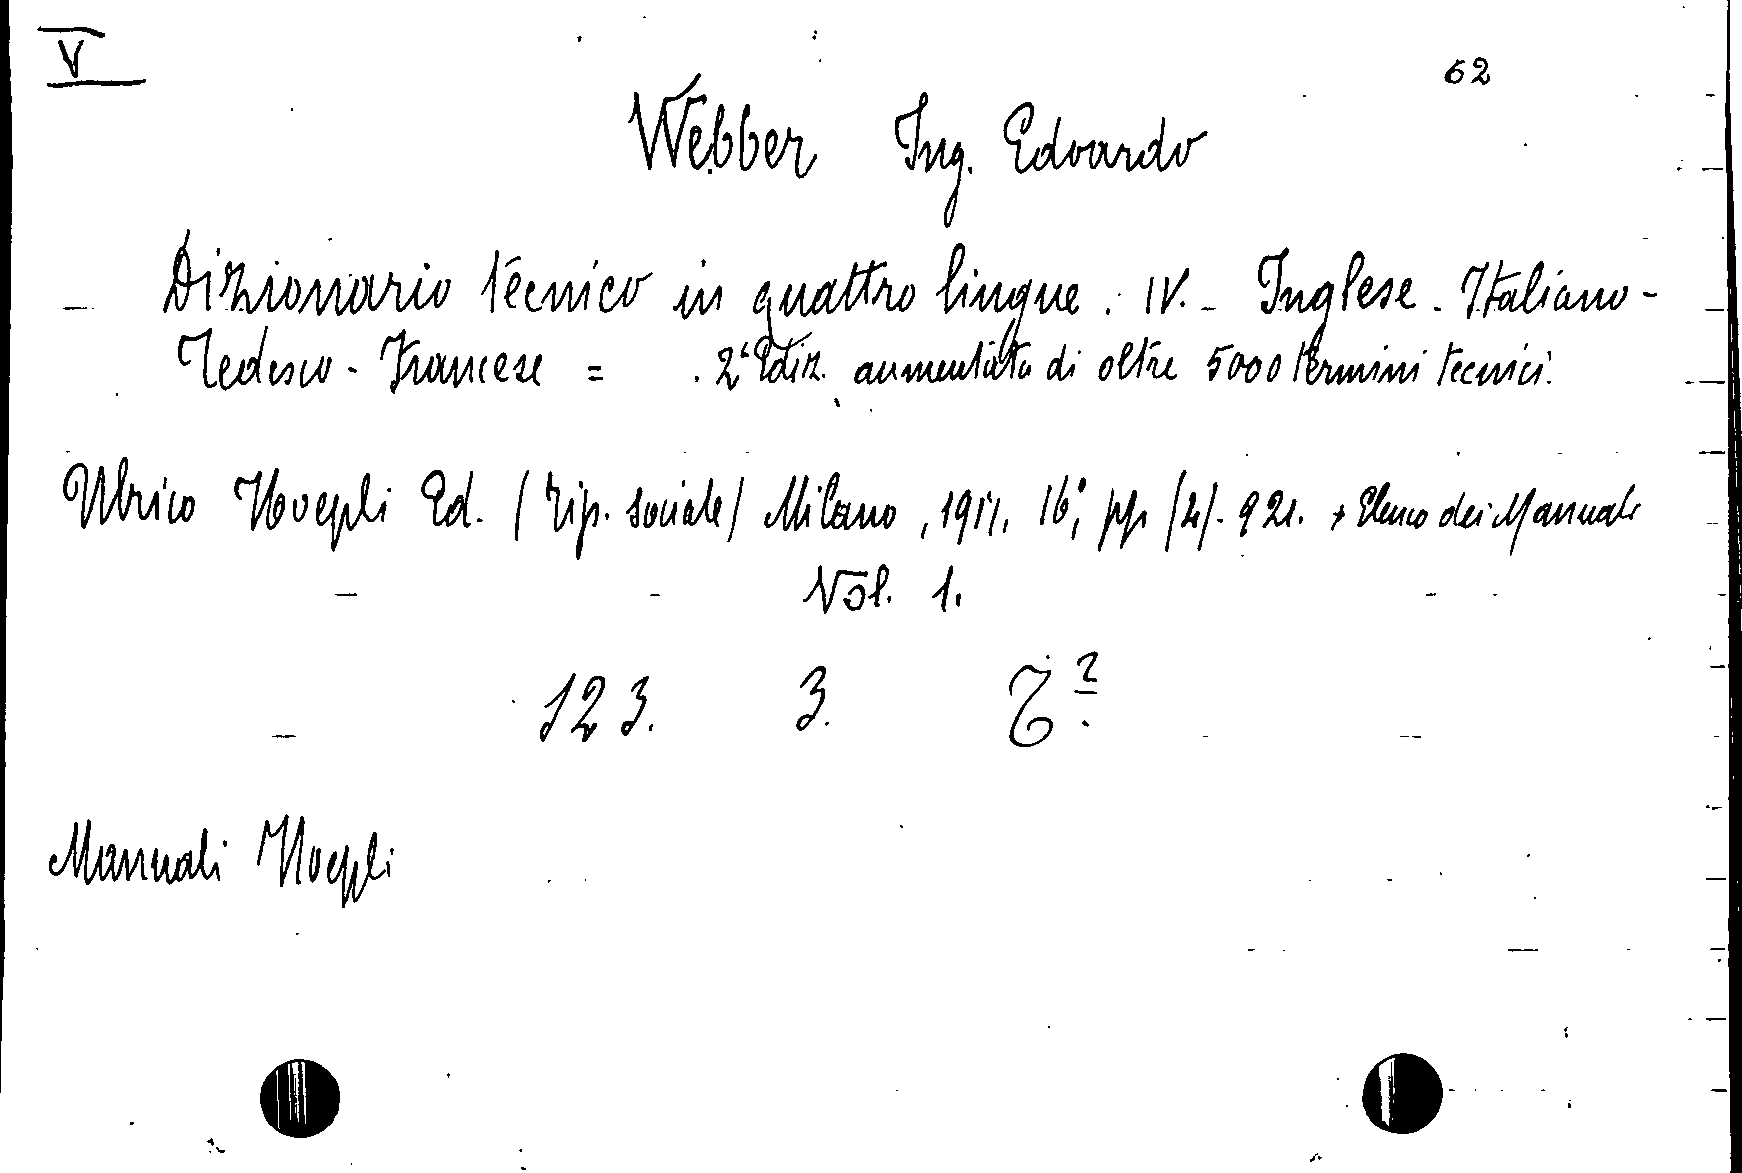 V
62
Webber Ing. Edoardo
Dizionario tecnico in quattro lingue. IV. - Inglese - Italiano -
Tedesco - Francese = . 2ª Ediz. aumentata di oltre 5000 termini tecnici.
Ulrico Hoepli Ed. (Tip. sociale) Milano, 1917, 16°, pp. (4). 921. + Elenco dei Manuali
Vol. 1.
123. 3.
Manuali Hoepli